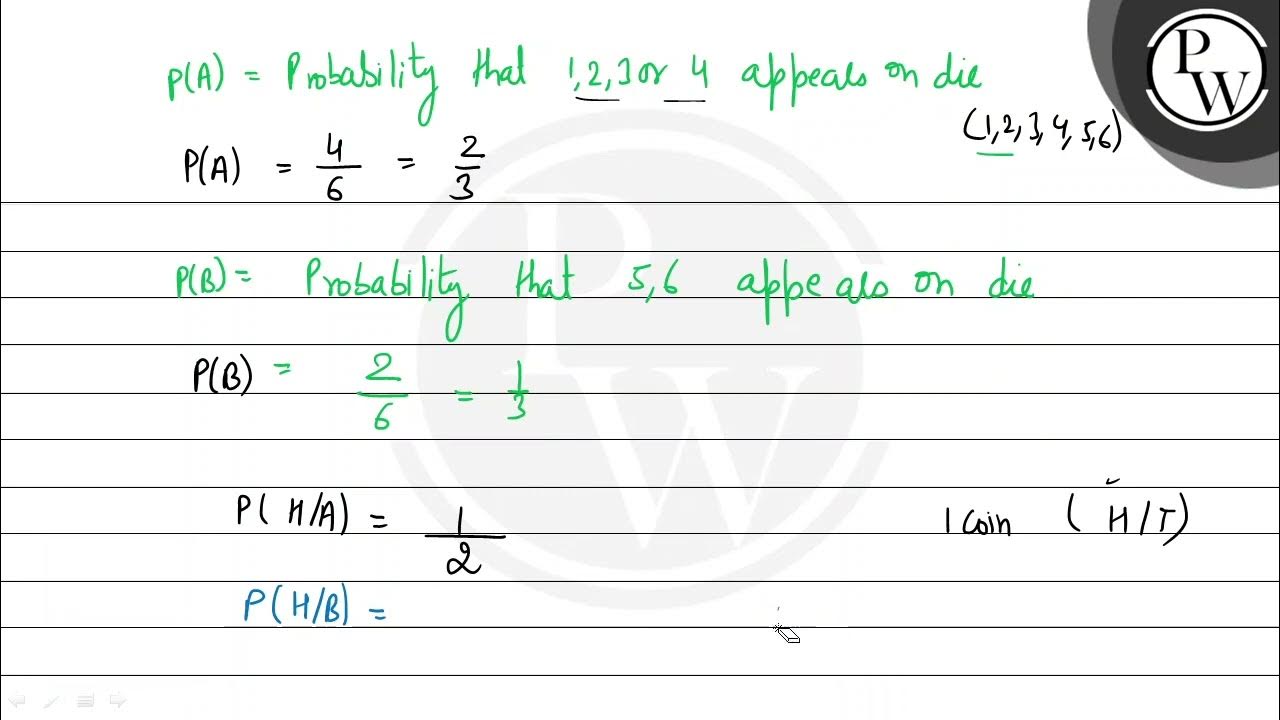 P(A) = Probability that 1,2,3 or 4 appears on die
(1,2,3,4,5,6)
P(A) = 4/6 = 2/3
P(B) = Probability that 5,6 appears on die
P(B) = 2/6 = 1/3
P(H/A) = 1/2
1 Coin (H/T)
P(H/B) =
PW
PW